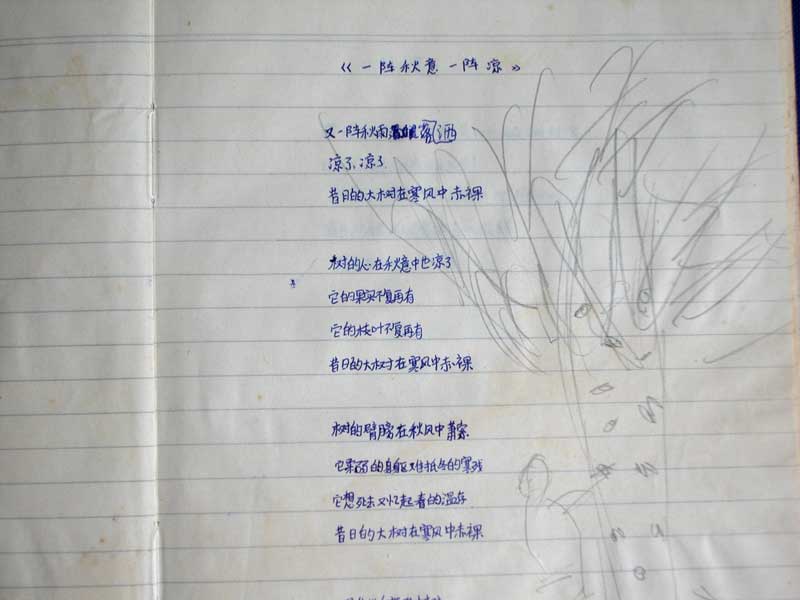 《一阵秋意一阵凉》
又一阵秋雨飘洒
凉了、凉了
昔日的大树在寒风中赤裸
树的心在秋意中也凉了
它的果实不复再有
它的枝叶不复再有
昔日的大树在寒风中赤裸
树的臂膀在秋风中萧索
它柔弱的身躯难抵冬的寒戏
它想死去又忆起春的温存
昔日的大树在寒风中赤裸